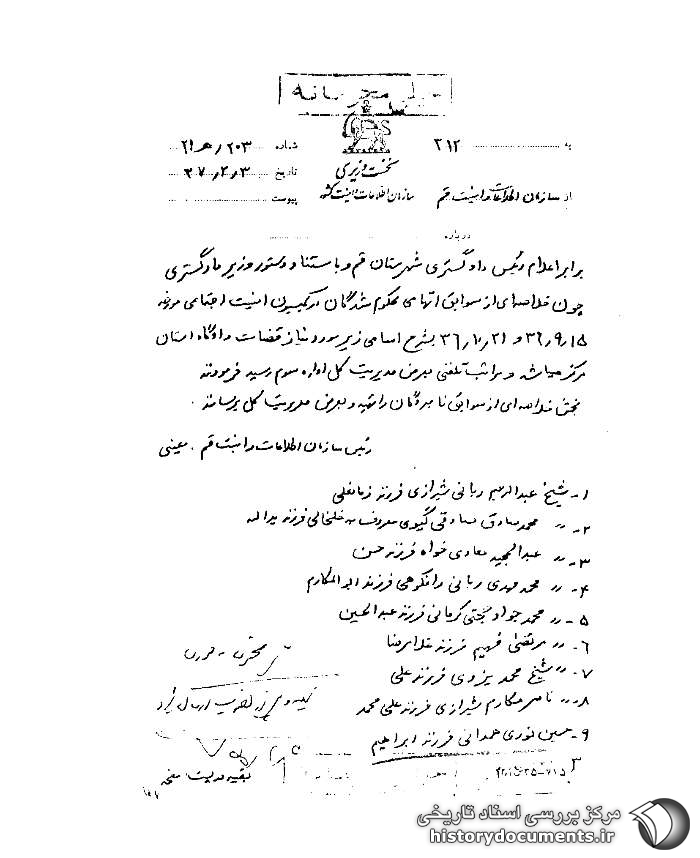 خیلی محرمانه
به ۳۱۲
شماره ۲۱/۵/۲۰۳
نخست وزیری
تاریخ ۳۷/۲/۳
از سازمان اطلاعات و امنیت قم
سازمان اطلاعات و امنیت کشور
پیوست
درباره
برابر اعلام رئیس دادگستری شهرستان قم و باستناد دستور وزیر دادگستری
چون خلاصه‌ای از سوابق اتهامی محکوم شدگان در کمیسیون امنیت اجتماعی مورخه
۳۶/۹/۱۵ و ۳۶/۱۰/۲۱ بشرح اسامی زیر مورد نیاز قضات دادگاه استان
مرکز میباشد و مراتب تلفنی بعرض مدیریت کل اداره سوم رسید فرمودند
بخش خلاصه‌ای از سوابق نامبردگان را تهیه و بعرض مدیریت کل برسانند.
رئیس سازمان اطلاعات و امنیت قم. معینی
۱- شیخ عبدالرحیم ربانی شیرازی فرزند
۲- " محمد صادق صادقی گیوی معروف به خلخالی فرزند یداله
۳- " عبدالمجید معادی خواه فرزند حسن
۴- " محمد مهدی ربانی رانکوهی فرزند ابوالمکارم
۵- " محمد جواد حجتی کرمانی فرزند عبدالحسین
۶- " مرتضی فهیم فرزند غلامرضا
۷- " شیخ محمد یزدی فرزند علی
۸- " ناصر مکارم شیرازی فرزند علی محمد
۹- حسین نوری همدانی فرزند ابراهیم
بقیه در پشت صفحه
مرکز بررسی اسناد تاریخی
historydocuments.ir